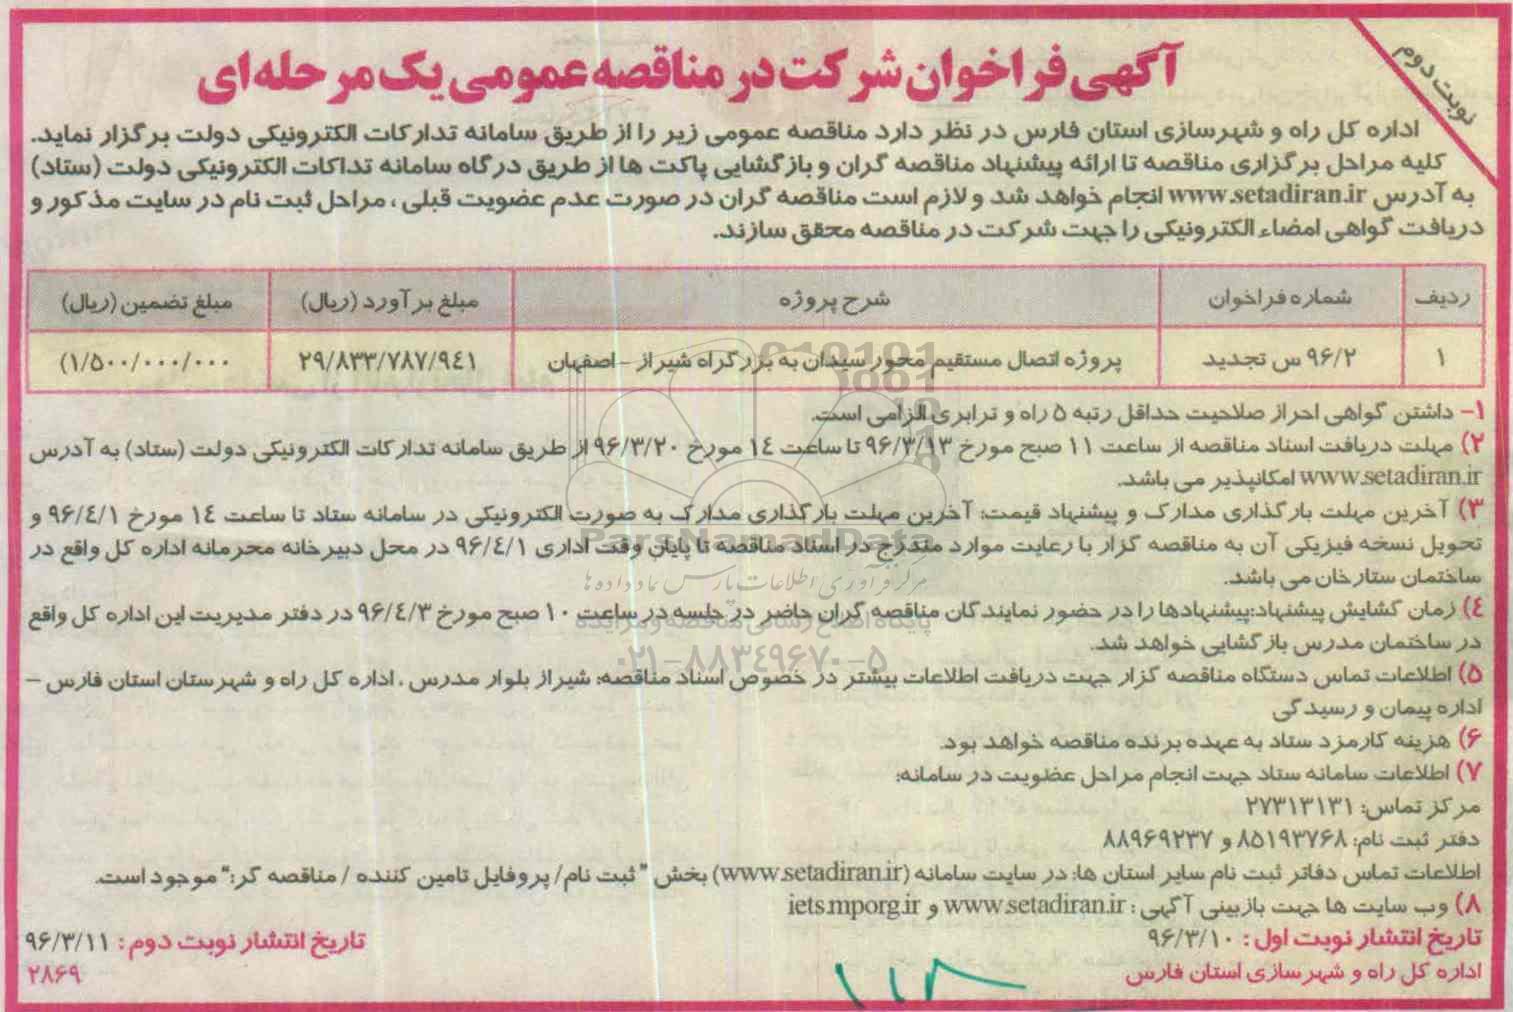 نوبت دوم
آگهی فراخوان شرکت در مناقصه عمومی یک مرحله‌ای
اداره کل راه و شهرسازی استان فارس در نظر دارد مناقصه عمومی زیر را از طریق سامانه تدارکات الکترونیکی دولت برگزار نماید.
کلیه مراحل برگزاری مناقصه تا ارائه پیشنهاد مناقصه گران و بازگشایی پاکت ها از طریق درگاه سامانه تداکات الکترونیکی دولت (ستاد)
به آدرس www.setadiran.ir انجام خواهد شد و لازم است مناقصه گران در صورت عدم عضویت قبلی ، مراحل ثبت نام در سایت مذکور و
دریافت گواهی امضاء الکترونیکی را جهت شرکت در مناقصه محقق سازند.
ردیف شماره فراخوان شرح پروژه مبلغ برآورد (ریال) مبلغ تضمین (ریال)
۱ ۹۶/۲ س تجدید پروژه اتصال مستقیم محور سیدان به بزرگراه شیراز – اصفهان ۲۹/۸۳۳/۷۸۷/۹٤۱ ۱/۵۰۰/۰۰۰/۰۰۰)
۱- داشتن گواهی احراز صلاحیت حداقل رتبه ۵ راه و ترابری الزامی است.
۲) مهلت دریافت اسناد مناقصه از ساعت ۱۱ صبح مورخ ۹۶/۳/۱۳ تا ساعت ۱٤ مورخ ۹۶/۳/۲۰ از طریق سامانه تدارکات الکترونیکی دولت (ستاد) به آدرس
www.setadiran.ir امکانپذیر می باشد.
۳) آخرین مهلت بارگذاری مدارک و پیشنهاد قیمت: آخرین مهلت بارگذاری مدارک به صورت الکترونیکی در سامانه ستاد تا ساعت ۱٤ مورخ ۹۶/٤/۱ و
تحویل نسخه فیزیکی آن به مناقصه گزار با رعایت موارد مندرج در اسناد مناقصه تا پایان وقت اداری ۹۶/٤/۱ در محل دبیرخانه محرمانه اداره کل واقع در
ساختمان ستارخان می باشد.
٤) زمان گشایش پیشنهاد:پیشنهادها را در حضور نمایندگان مناقصه گران حاضر در جلسه در ساعت ۱۰ صبح مورخ ۹۶/٤/۳ در دفتر مدیریت این اداره کل واقع
در ساختمان مدرس بازگشایی خواهد شد.
۵) اطلاعات تماس دستگاه مناقصه گزار جهت دریافت اطلاعات بیشتر در خصوص اسناد مناقصه: شیراز بلوار مدرس ، اداره کل راه و شهرستان استان فارس –
اداره پیمان و رسیدگی
۶) هزینه کارمزد ستاد به عهده برنده مناقصه خواهد بود.
۷) اطلاعات سامانه ستاد جهت انجام مراحل عضویت در سامانه:
مرکز تماس: ۲۷۳۱۳۱۳۱
دفتر ثبت نام: ۸۵۱۹۳۷۶۸ و ۸۸۹۶۹۲۳۷
اطلاعات تماس دفاتر ثبت نام سایر استان ها: در سایت سامانه (www.setadiran.ir) بخش " ثبت نام/ پروفایل تامین کننده / مناقصه گر:" موجود است.
۸) وب سایت ها جهت بازبینی آگهی : www.setadiran.ir و iets.mporg.ir
تاریخ انتشار نوبت اول : ۹۶/۳/۱۰ تاریخ انتشار نوبت دوم : ۹۶/۳/۱۱
اداره کل راه و شهرسازی استان فارس ۲۸۶۹
ParsNamadData
مرکز فرآوری اطلاعات پارس نماد داده ها
پایگاه اطلاع رسانی مناقصه و مزایده
۰۲۱-۸۸۳٤۹۶۷۰-۵